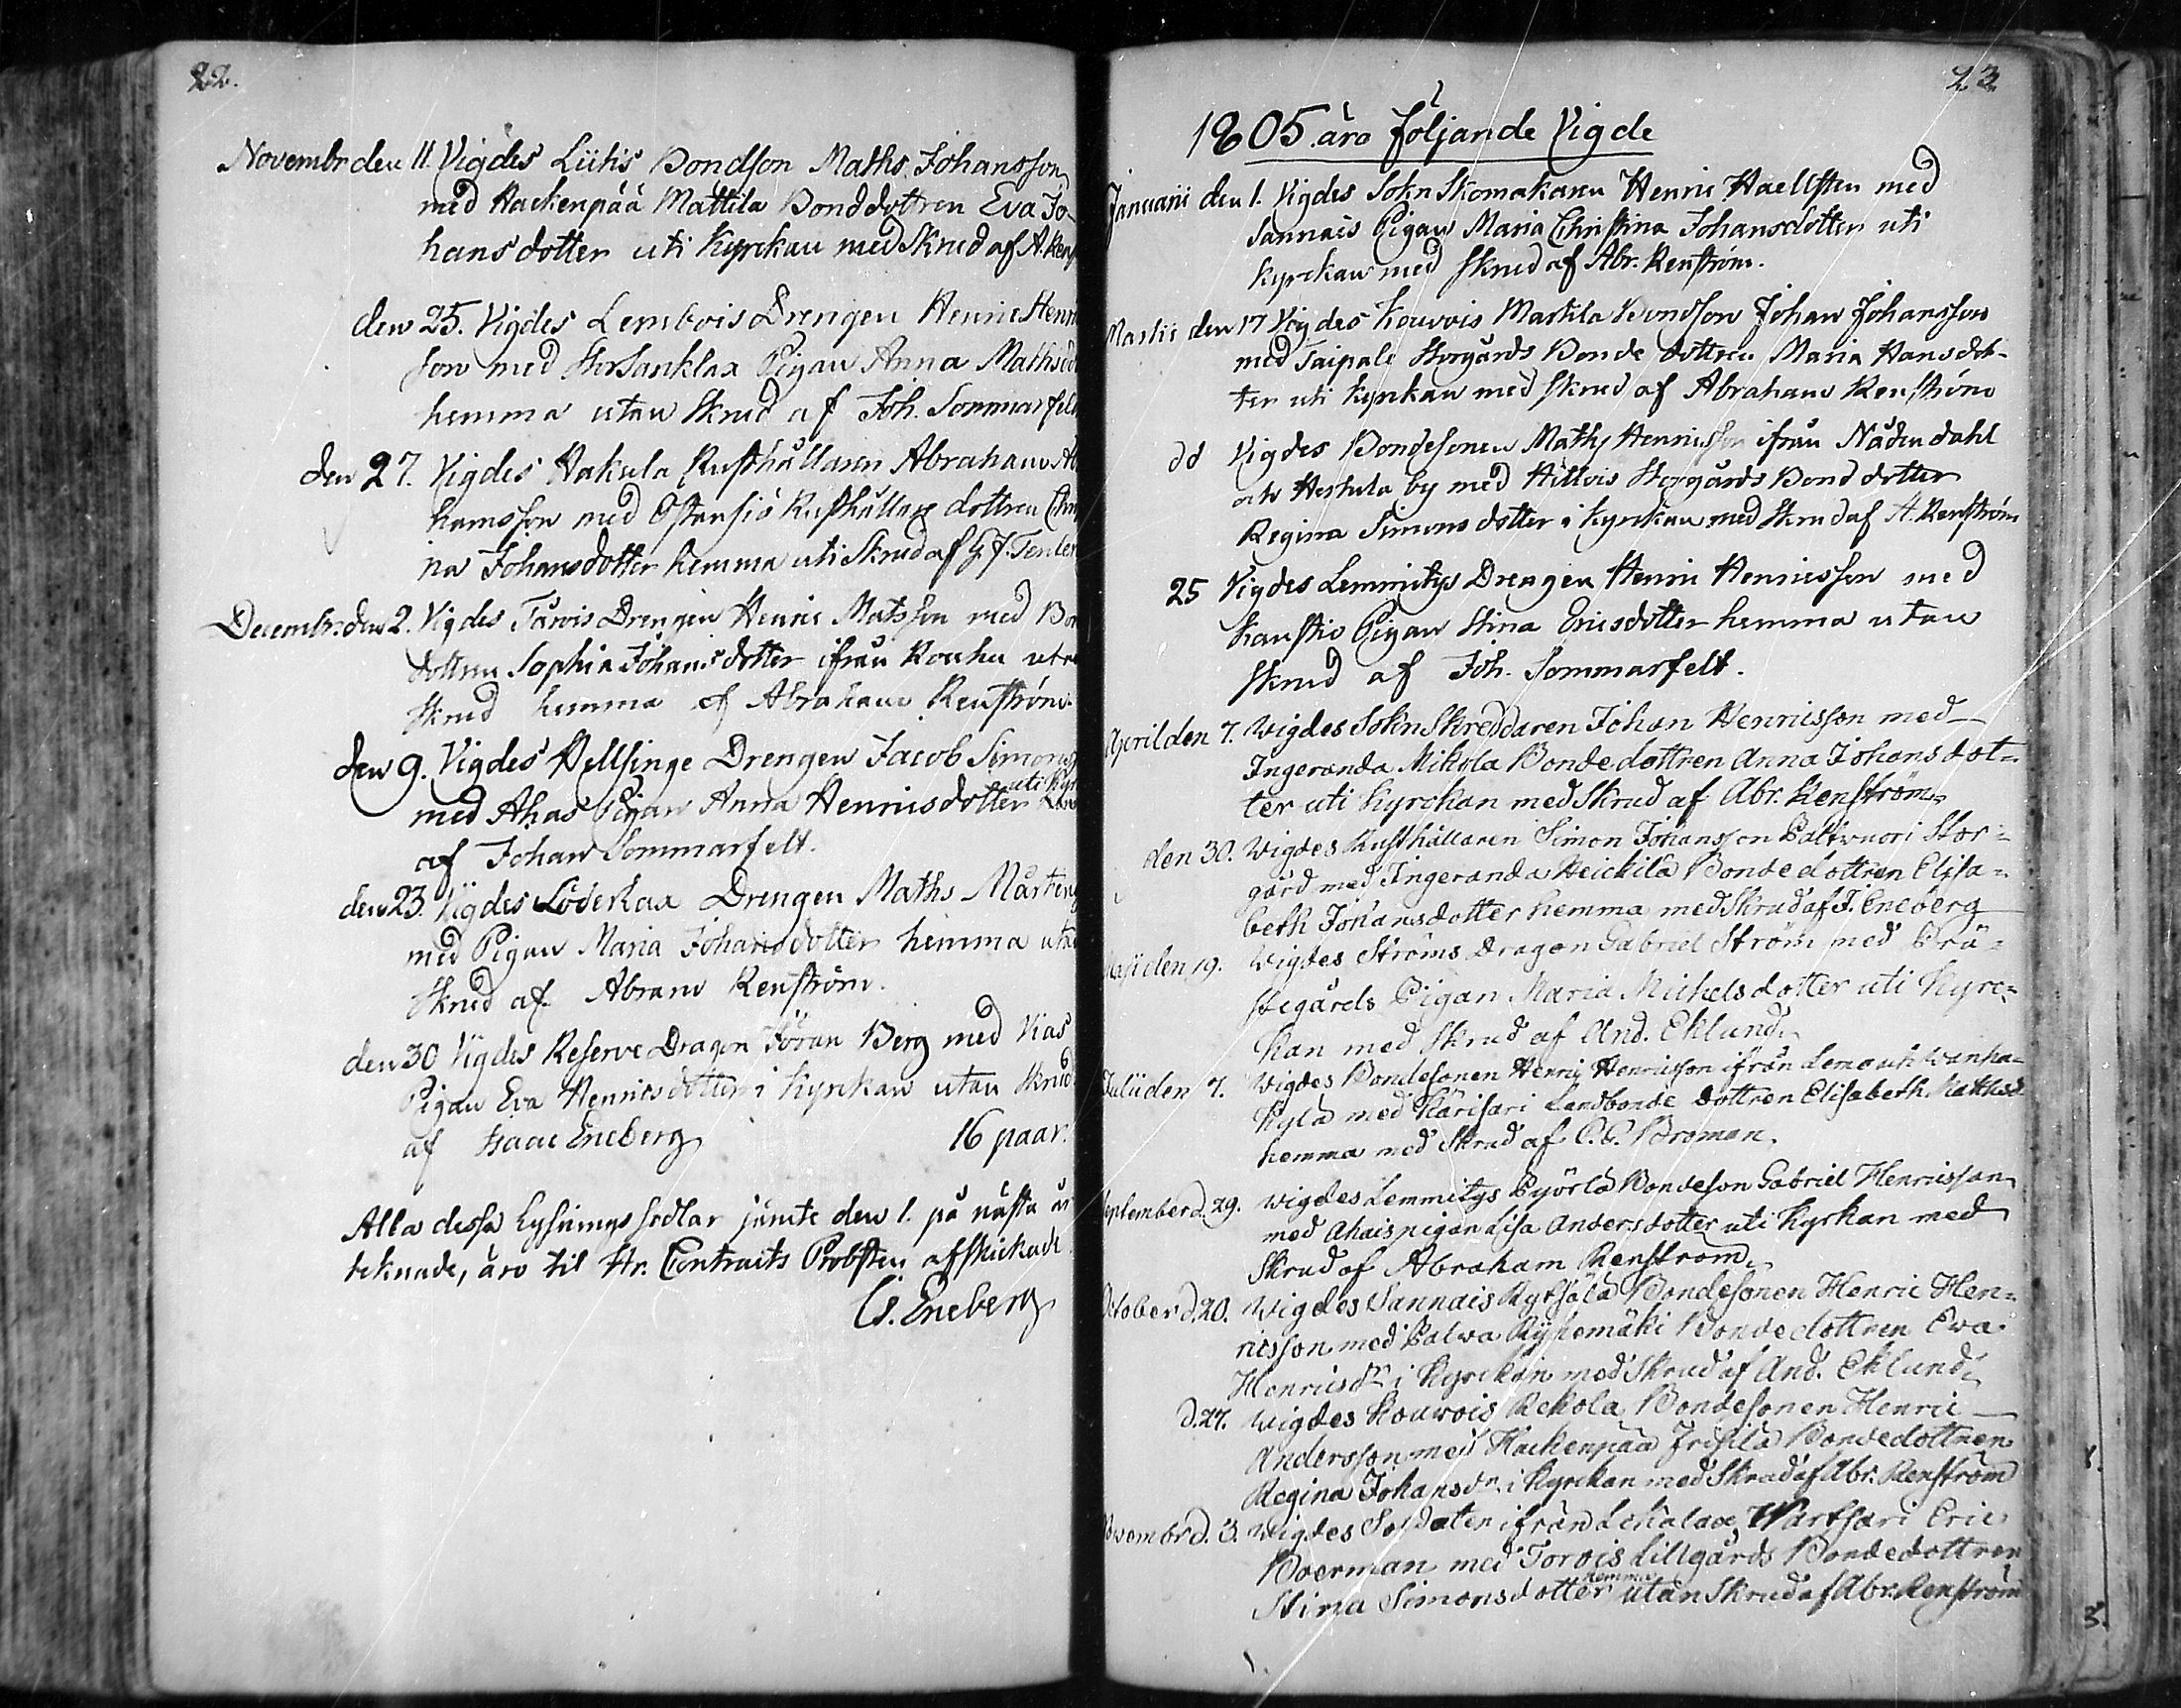 22.
Novembr den 11. Vigdes Liitis Bondson Maths Johansson
med Hackenpää Mattila Bonddottren Eva Jo-
hansdotter uti Kyrckan med Skrud af A. Ren
den 25. Vigdes Lembois Drengen Henric Henri
son med Storsanklax Pigan Anna Mathsd
hemma utan Skrud af Joh. Sommarfel
den 27. Vigdes Hakula Rusthållaren Abraham
hamsson med Ostensiö Rusthållare dottren Chri
na Johansdotter hemma uti Skrud af G. J.
Decembr. den 2. Vigdes Tårvis Drengen Henric Matsson med Bon
dottren Sophia Johansdotter ifrån Rouhu uta
Skrud hemma af Abraham Renström.
den 9. Vigdes Hellsinge Drengen Jacob Simons
uti Kyr
med Ahas Pigan Anna Henricsdotter
af Johan Sommarfelt.
den 23. Vigdes Löderkax Drengen Maths Mårtens
med Pigan Maria Johansdotter hemma uta
Skrud af Abram Renström.
den 30 Vigdes Reserve Dragon Jöran Berg med Vias
Pigan Eva Henricsdotter i Kyrckan utan Skrud
af Isaac Eneberg
16 paar.
Alla dessa Lysnings sedlar jämte den 1. på nästa år
teknade, äro til Hr. Contracts Probsten afskickade
Is. Eneberg
23
1805 äro följande Vigde
Januarii den 1. Vigdes Sokn Skomakaren Henric Haellsten med
Sannais Pigan Maria Christina Johansdotter uti
Kyrckan med Skrud af Abr. Renström.
Martii den 17 Vigdes Kouvois Markila Bondson Johan Johansson
med Taipale Storgårds Bonde dottren Maria Hansdot-
ter uti Kyrkan med Skrud af Abraham Renström
dd Vigdes Bondesonen Maths Henricsson ifrån Nådendahl
och Hertula by med Hillois Storgårds Bond dotter
Regina Simonsdotter i Kyrckan med Skrud af A. Renström
25 Vigdes Lemmitys Drengen Henric Henricsson med
Kanstio Pigan Stina Ericsdotter hemma utan
Skrud af Joh. Sommarfelt.
April den 7. Wigdes Sokn Skreddaren Johan Henricsson med
Ingeranda Mikola Bondedottren Anna Johansdot-
ter uti Kyrckan med Skrud af Abr. Renström.
den 30. Wigdes Rusthållaren Simon Johansson Paltwuori Stor-
gård med Ingeranda Heickilä Bondedottren Elisa-
beth Johansdotter hemma med Skrud af I. Eneberg
Maji den 19. Wigdes Ströms Dragon Gabriel Ström med Prä-
stegårds Pigan Maria Michelsdotter uti Kyrc-
kan med Skrud af And. Eklund.
Julii den 7. Wigdes Bondesonen Henric Henricsson ifrån Lemo och Wanha-
Kylä med Karisari Landbonde dottren Elisabeth Mathsd.
hemma med Skrud af C. G. Broman.
September d. 29. Wigdes Lemmitys Pyörlä Bondeson Gabriel Henricsson
med Ahais pigan Lisa Andersdotter uti Kyrkan med
Skrud af Abraham Renström.
October d. 20. Wigdes Sannais Kytsälä Bondesonen Henric Hen-
ricsson med Palva Ryhemäki Bondedottren Eva
Henricsdr i Kyrckan med Skrud af And. Eklund.
d. 27. Wigdes Kouwois Rekola Bondesonen Henric
Andersson med Hackenpää Frifilä Bondedottren
Regina Johansdr. i Kyrckan med Skrud af Abr. Renström
Novembr d. 3. Wigdes Soldaten ifrån Lekalax, Wartsari Eric
Boerman med Torois Lillgårds Bondedottren
hemma
Stina Simonsdotter utan Skrud af Abr. Renström